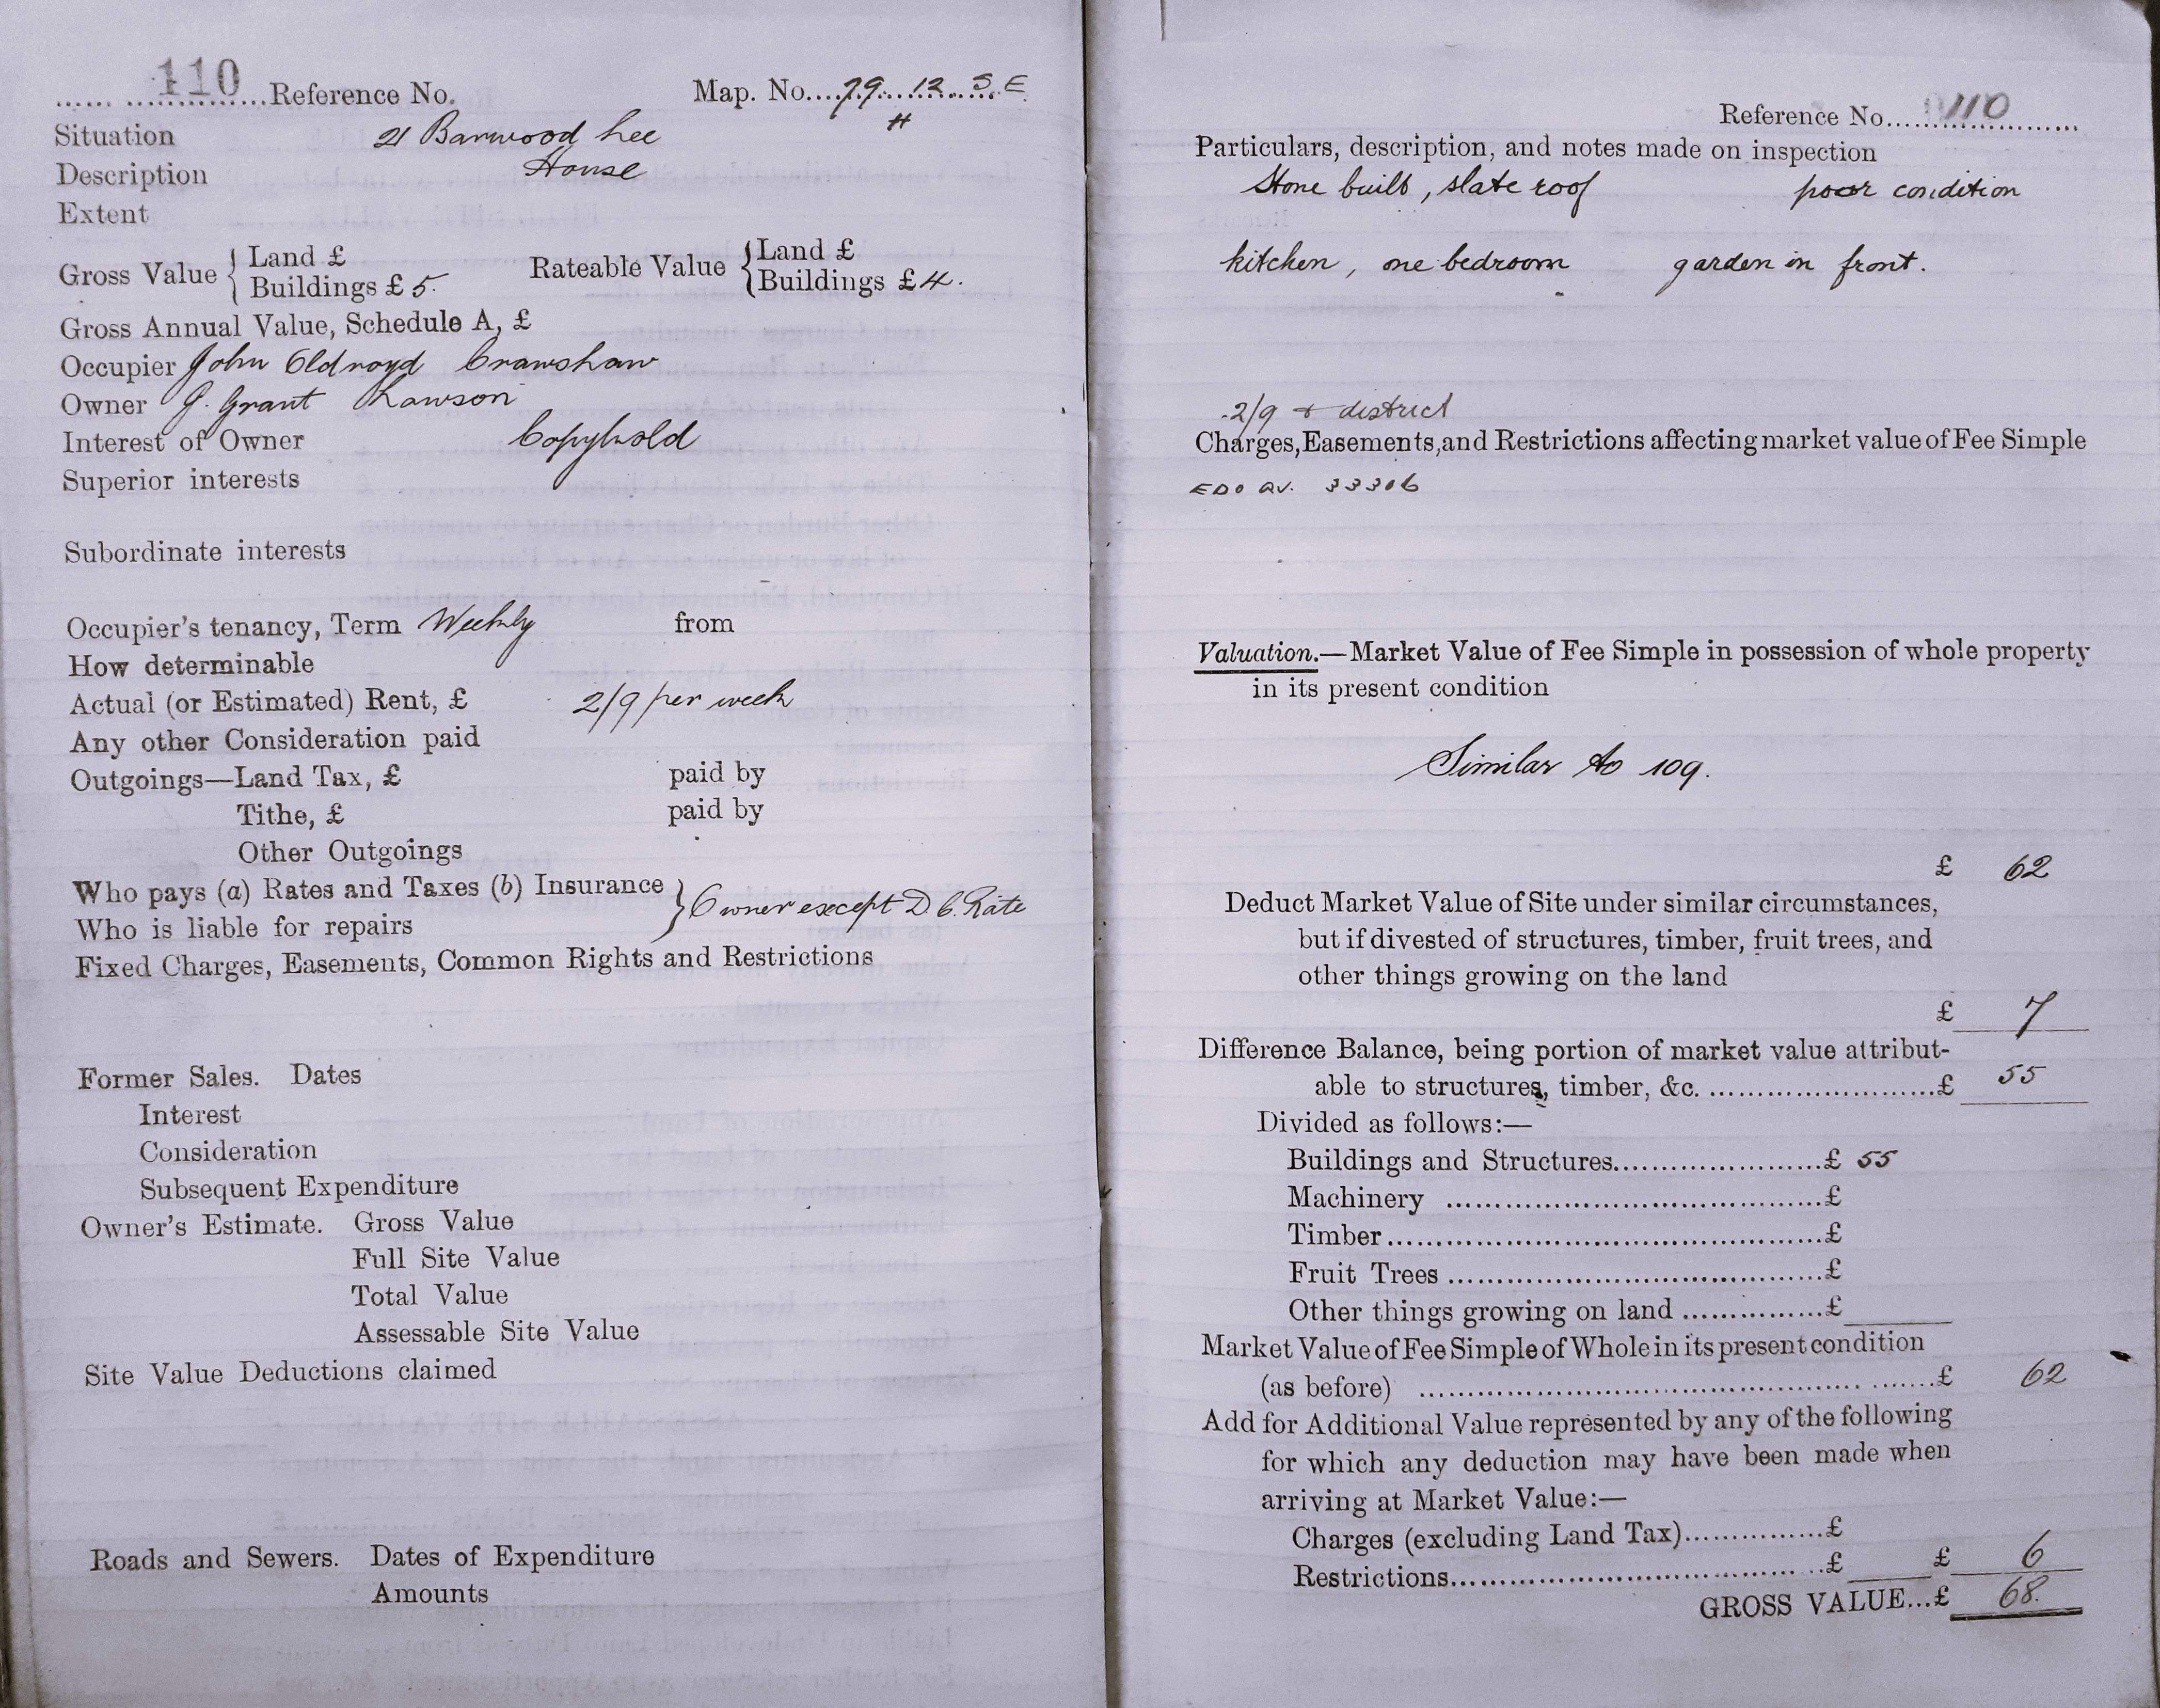 110 Reference No. Map. No. 79 12 S.E
H
Situation 21 Barwood Lee
Description House
Extent
Gross Value { Land £
Buildings £ 5. Rateable Value { Land £
Buildings £ 4.
Gross Annual Value, Schedule A, £
Occupier John Oldroyd Crawshaw
Owner J. Grant Lawson
Interest of Owner Copyhold
Superior interests
Subordinate interests
Occupier's tenancy, Term Weekly from
How determinable
Actual (or Estimated) Rent, £ 2/9 per week
Any other Consideration paid
Outgoings—Land Tax, £ paid by
Tithe, £ paid by
Other Outgoings
Who pays (a) Rates and Taxes (b) Insurance } Owner except D C. Rate
Who is liable for repairs
Fixed Charges, Easements, Common Rights and Restrictions
Former Sales. Dates
Interest
Consideration
Subsequent Expenditure
Owner's Estimate. Gross Value
Full Site Value
Total Value
Assessable Site Value
Site Value Deductions claimed
Roads and Sewers. Dates of Expenditure
Amounts
Reference No. 110
Particulars, description, and notes made on inspection
Stone built, slate roof poor condition
kitchen, one bedroom garden in front.
2/9 + district
Charges, Easements, and Restrictions affecting market value of Fee Simple
33306
Valuation.—Market Value of Fee Simple in possession of whole property
in its present condition
Similar to 109.
£ 62
Deduct Market Value of Site under similar circumstances,
but if divested of structures, timber, fruit trees, and
other things growing on the land
£ 7
Difference Balance, being portion of market value attribut-
able to structures, timber, &c. £ 55
Divided as follows:—
Buildings and Structures £ 55
Machinery £
Timber £
Fruit Trees £
Other things growing on land £
Market Value of Fee Simple of Whole in its present condition
(as before) £ 62
Add for Additional Value represented by any of the following
for which any deduction may have been made when
arriving at Market Value:—
Charges (excluding Land Tax) £
Restrictions £ £ 6
GROSS VALUE...£ 68.